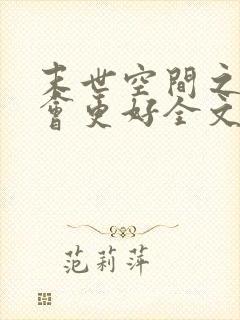 末世空間之
會更好全文
范莉萍